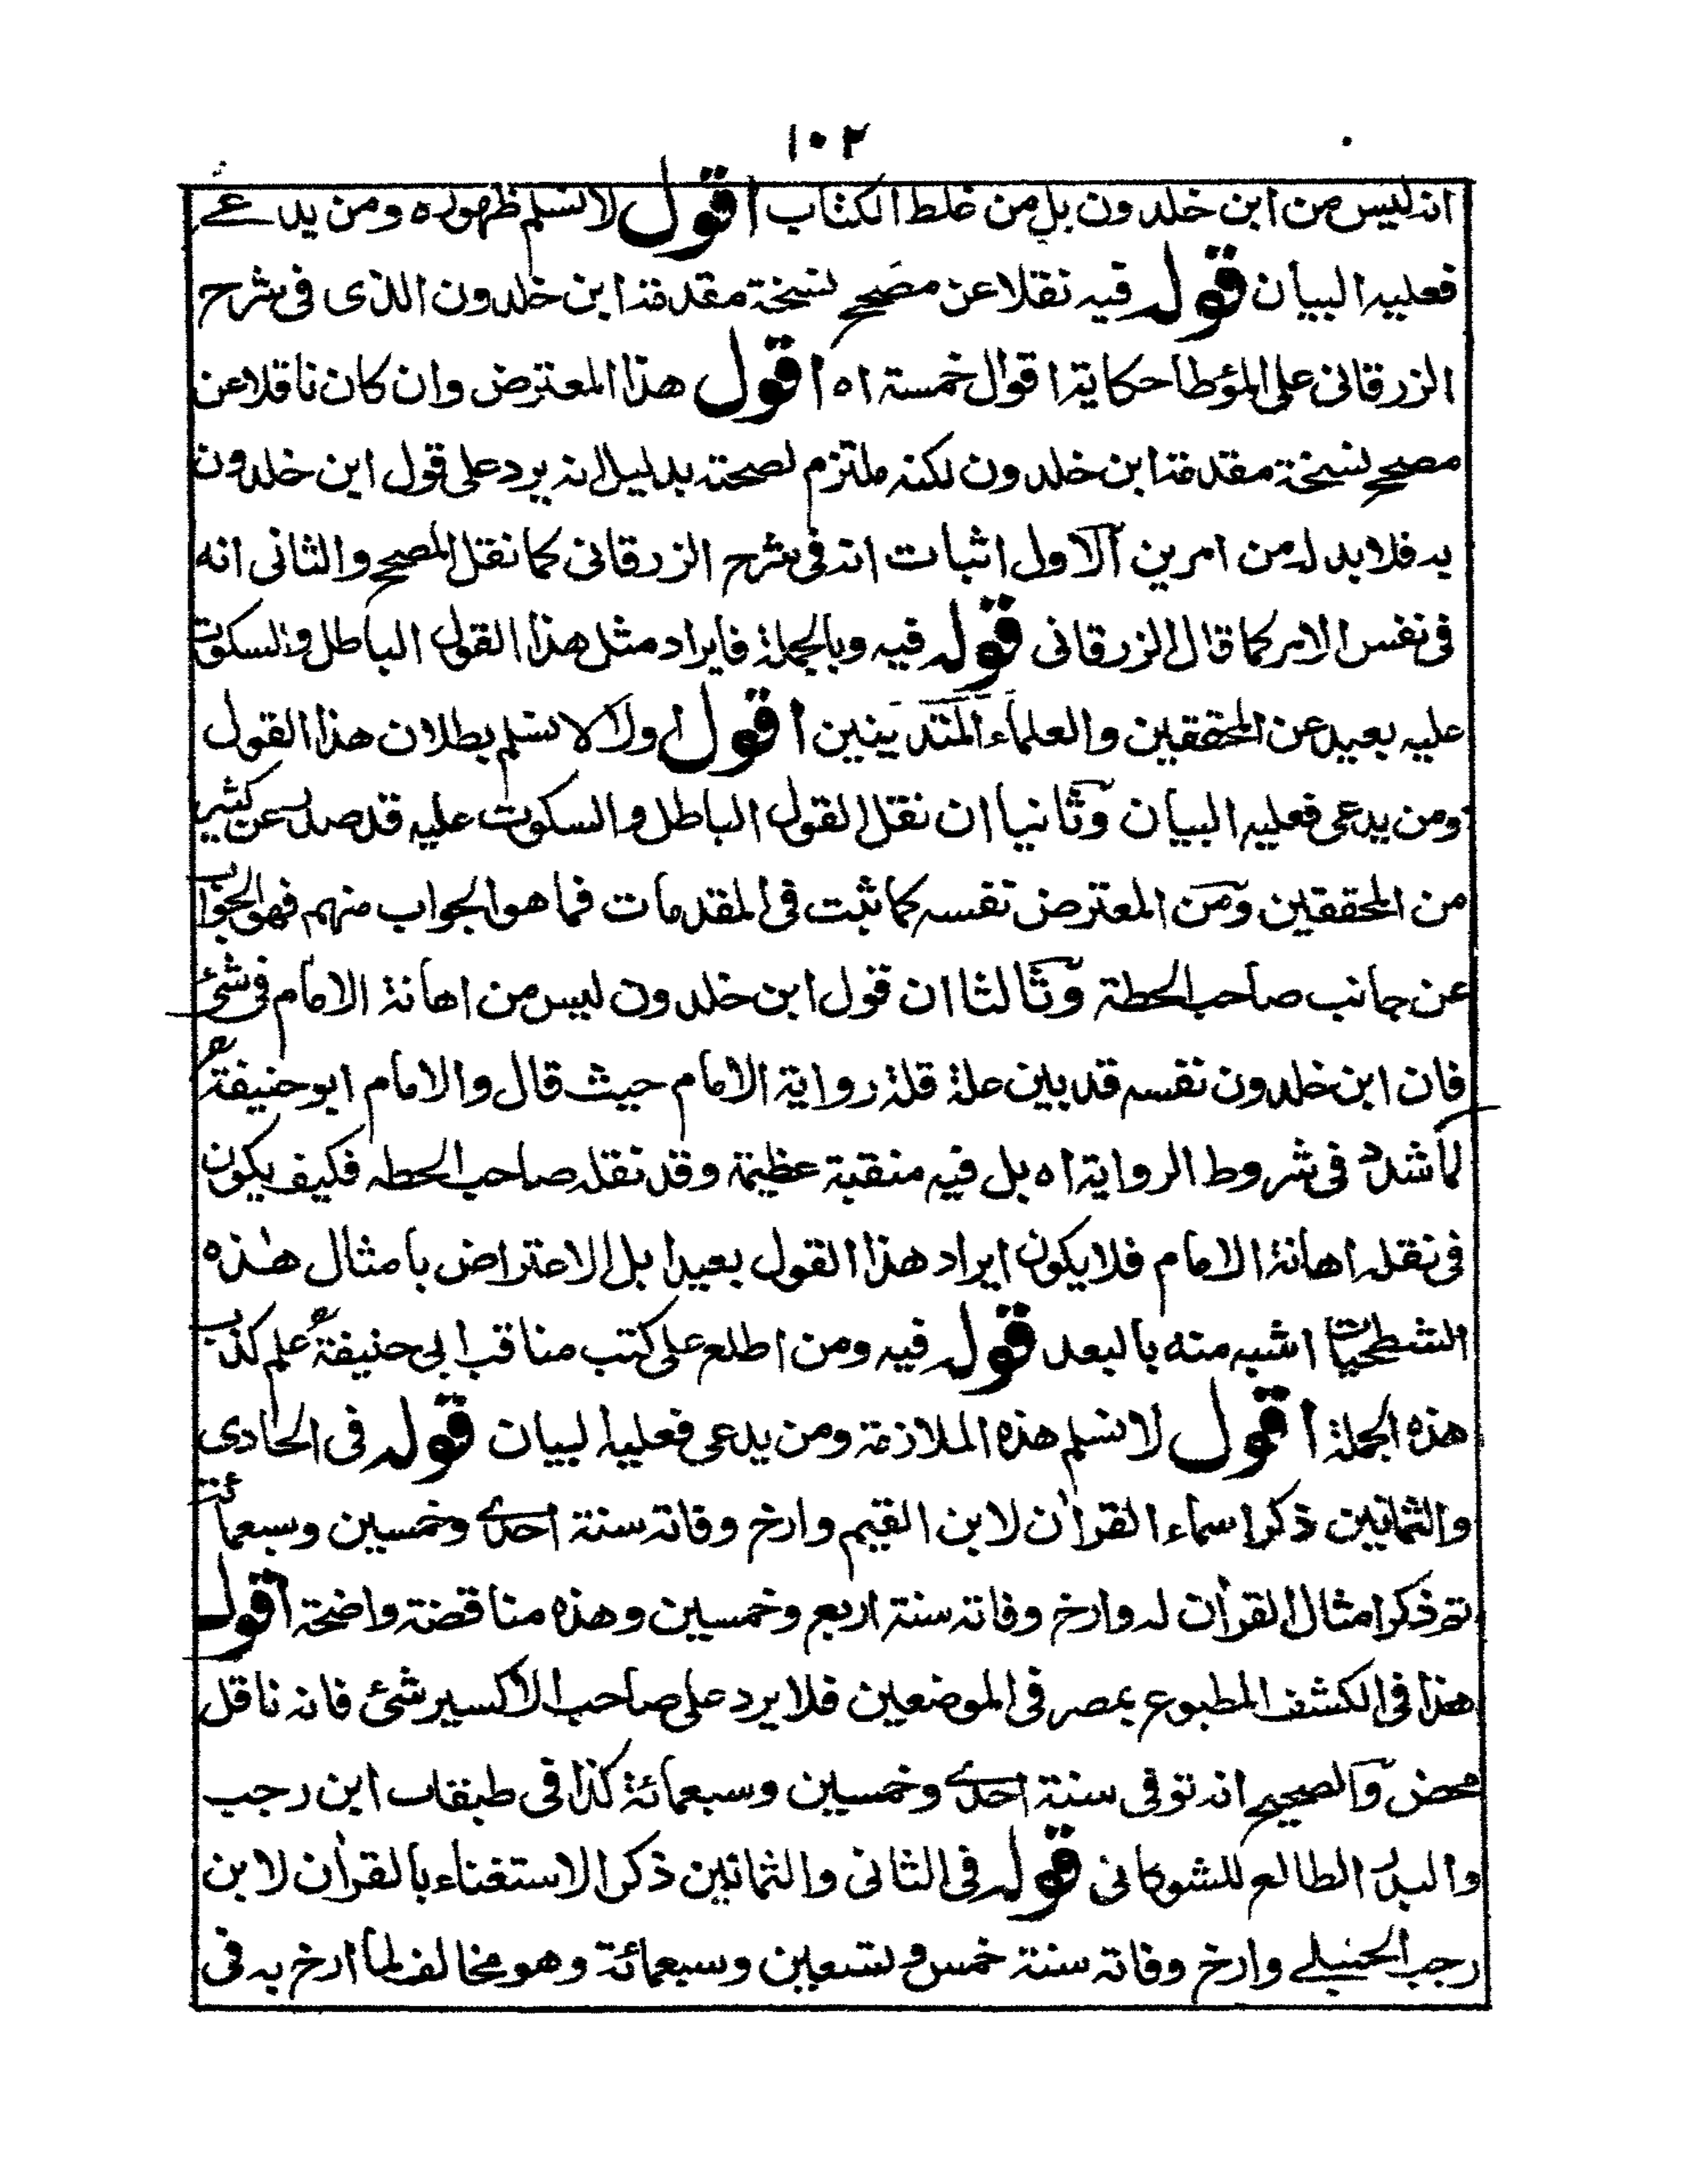 ١٠٢
انه ليس من ابن خلدون بل من غلط الكتاب اقول لا نسلم ظهوره ومن يدعى
فعليه البيان قوله فيه نقلا عن مصحح نسخة مقدمة ابن خلدون الذى فى شرح
الزرقانى على المؤطا حكاية اقوال خمسة اه اقول هذا المعترض وان كان ناقلا عن
مصحح نسخة مقدمة ابن خلدون لكنه ملتزم لصحته بدليل انه يرد على قول ابن خلدون
به فلا بد له من امرين الاول اثبات انه فى شرح الزرقانى كما نقل المصحح والثانى انه
فى نفس الامر كما قال الزرقانى قوله فيه وبالجملة فايراد مثل هذا القول الباطل والسكوت
عليه بعيد عن المحققين والعلماء المتدينين اقول اولا لا نسلم بطلان هذا القول
ومن يدعى فعليه البيان وثانيا ان نقل القول الباطل والسكوت عليه قد صدر عن كثير
من المحققين ومن المعترض نفسه كما ثبت فى المقدمات فما هو الجواب منهم فهو الجواب
عن جانب صاحب الحطة وثالثا ان قول ابن خلدون ليس من اهانة الامام فى شئ
فان ابن خلدون نفسه قد بين علة قلة رواية الامام حيث قال والامام ابو حنيفة
لما شدد فى شروط الرواية اه بل فيه منقبة عظيمة وقد نقله صاحب الحطه فكيف يكون
فى نقله اهانة الامام فلا يكون ايراد هذا القول بعيدا بل الاعتراض بامثال هذه
الشطحيات اشبه منه بالبعد قوله فيه ومن اطلع على كتب مناقب ابى حنيفة علم كذب
هذه الجملة اقول لا نسلم هذه الملازمة ومن يدعى فعليه البيان قوله فى الحادى
والثمانين ذكر اسماء القرآن لابن القيم وارخ وفاته سنة احدى وخمسين وسبعمائة
ثم ذكر امثال القرآن له وارخ وفاته سنة اربع وخمسين وهذه مناقضة واضحة اقول
هذا فى الكشف المطبوع بمصر فى الموضعين فلا يرد على صاحب الاكسير شئ فانه ناقل
محض والصحيح انه توفى سنة احدى وخمسين وسبعمائة كذا فى طبقات ابن رجب
والبدر الطالع للشوكانى قوله فى الثانى والثمانين ذكر الاستغناء بالقرآن لابن
رجب الحنبلى وارخ وفاته سنة خمس وتسعين وسبعمائة وهو مخالف لما ارخ به فى